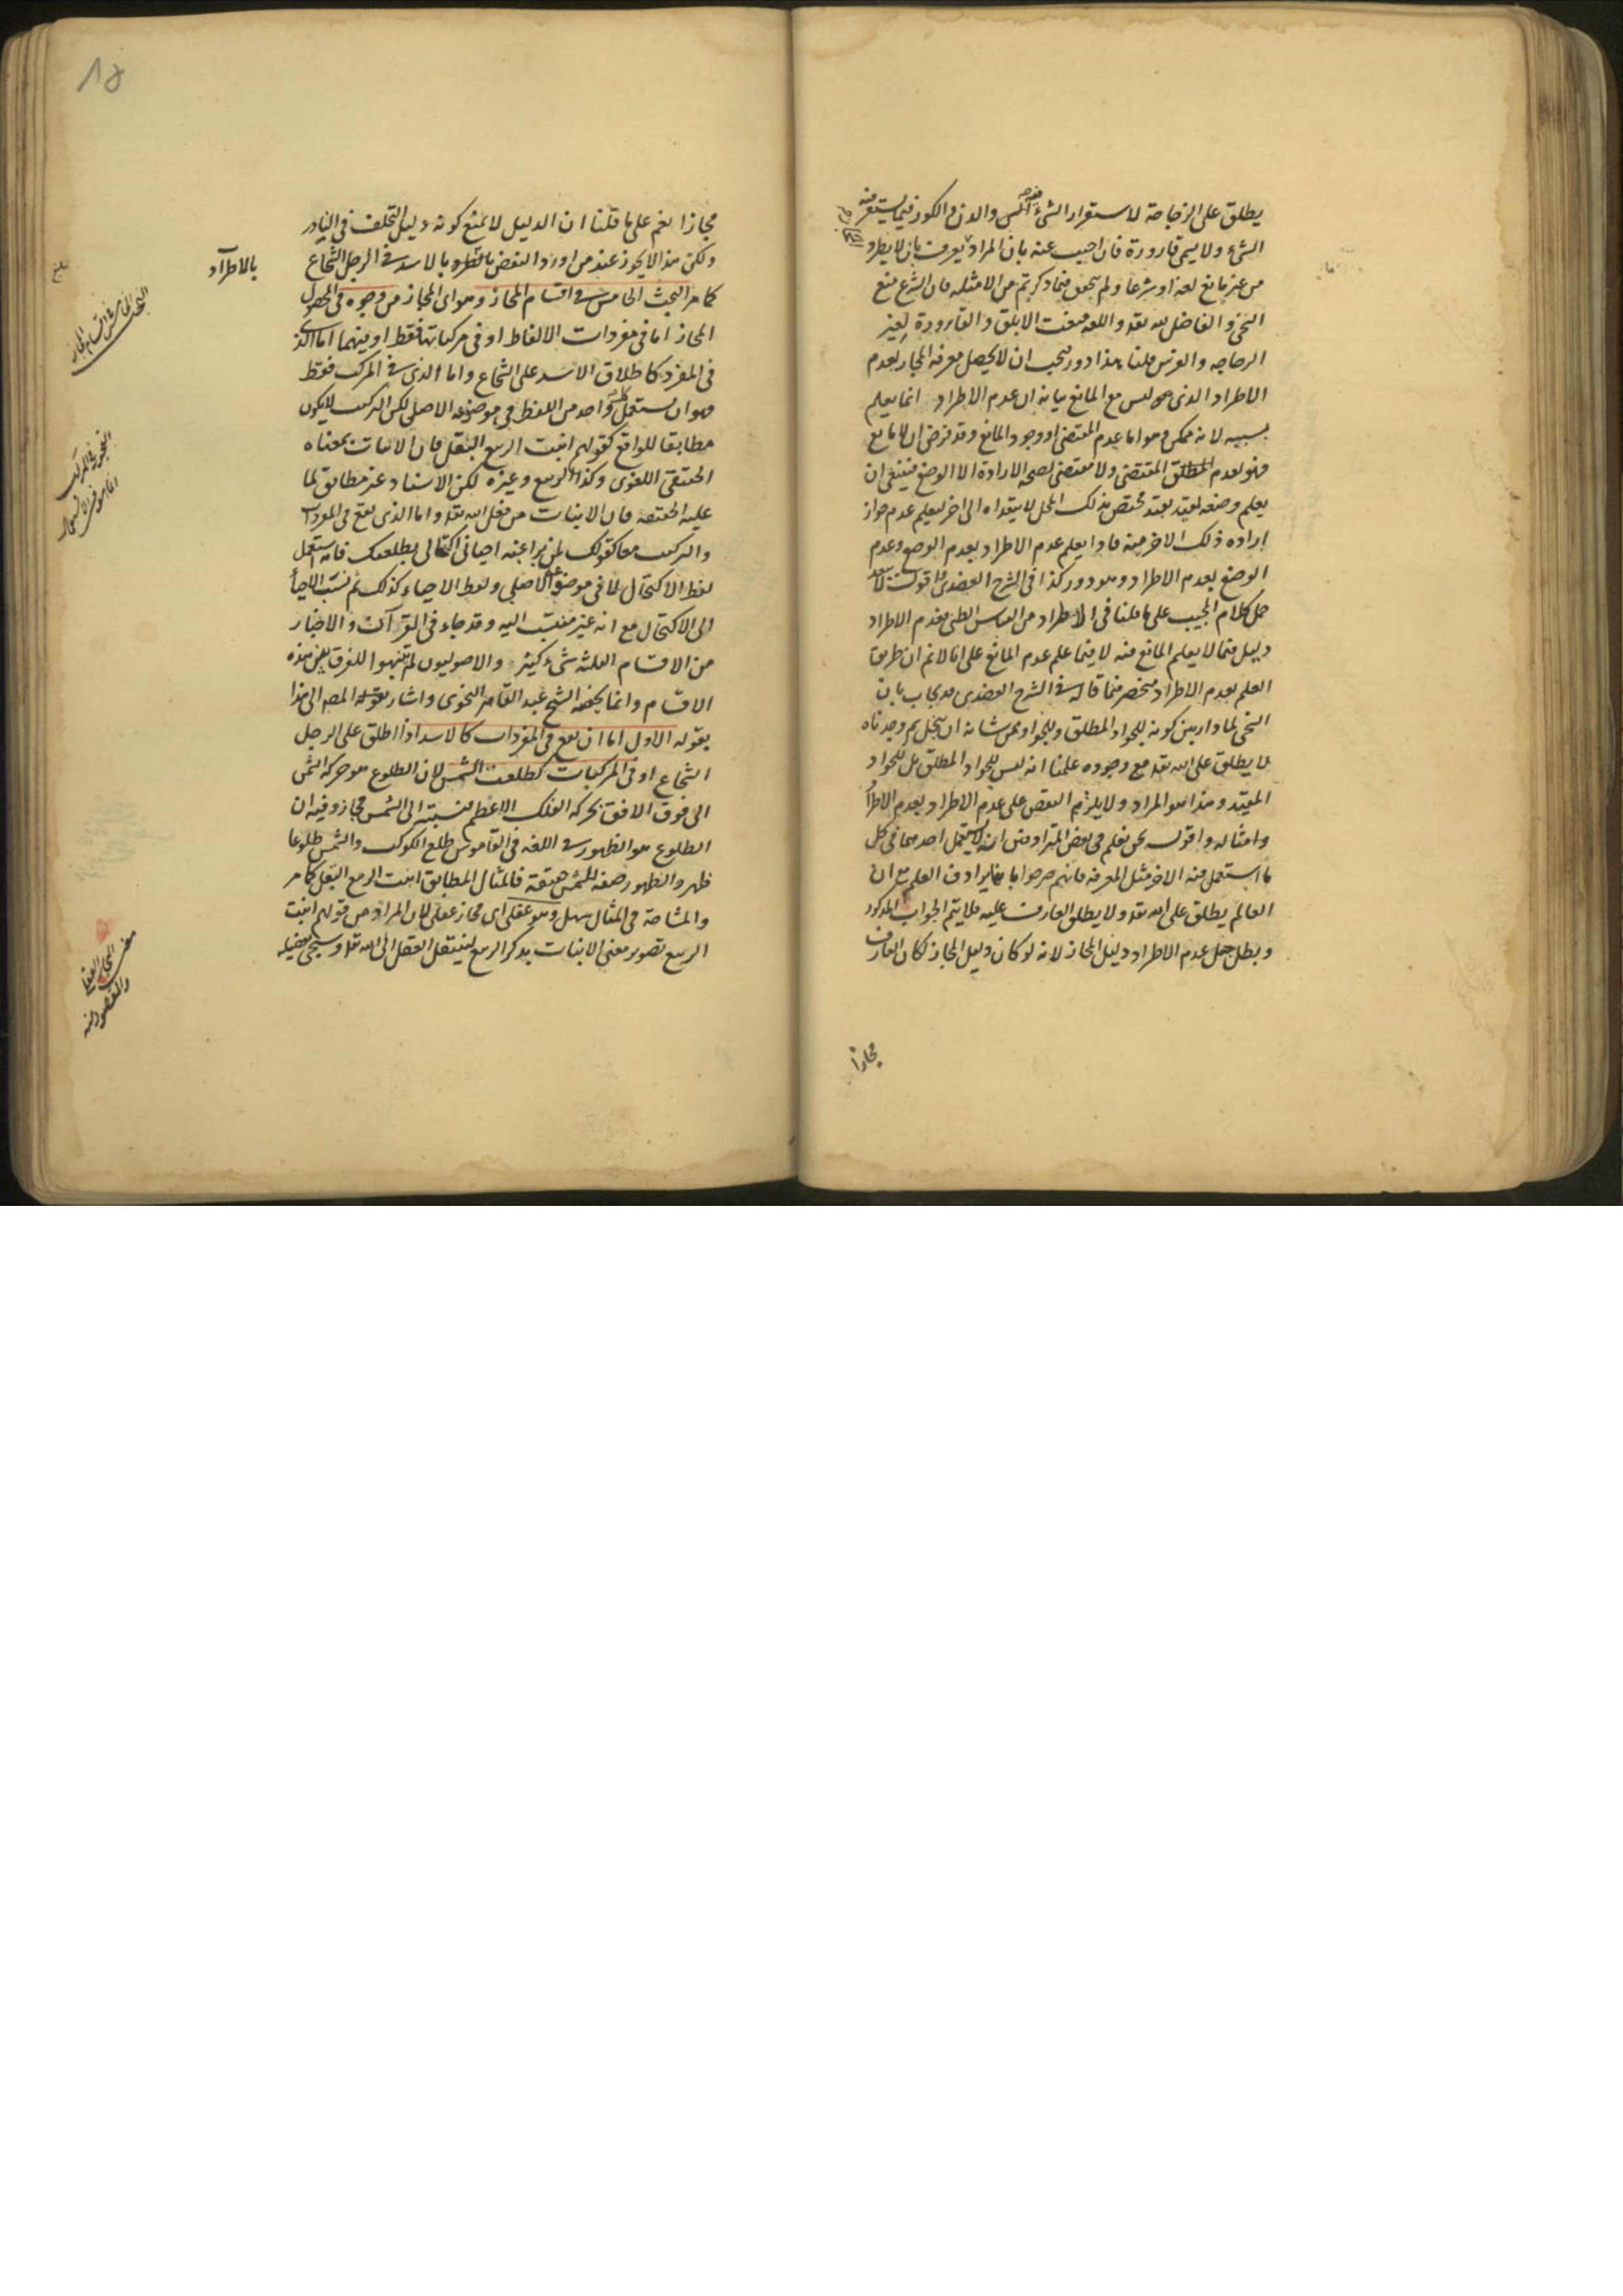 يطلق على الزجاجة لاستقرار الشيء والدن والكوز فيما يستقر فيه
الشيء ولا يسمى قارورة فان اجيب عنه بان المراد يعرف بان لا يطرد
من غير مانع لغة او شرعا ولم يتحقق فيما ذكرتم من الامثله فان الشرع منع
السخي والفاضل لله تعه واللغه منعت الابلق والقارورة لغير
الزجاجه والفرس قلنا هذا دور يجب ان لا يحصل معرفة المجاز بعدم
الاطراد الذي ليس مع المانع بيانه ان عدم الاطراد انما يعلم
بسببه لانه ممكن وهو اما عدم المقتضى او وجود المانع وقد فرض ان لا مانع
فهو لعدم المقتضى ولا مقتضى لصحه الارادة الا الوضع فينبغي ان
يعلم وضعه لمقيد بقيد مختص بذلك المحل لا يتعداه الى اخر ليعلم عدم جواز
اراده ذلك الاخر منه فاذا يعلم عدم الاطراد بعدم الوضع وعدم
الوضع بعدم الاطراد وهو دور كذا في الشرح العضدي اقول لا يبعد
حمل كلام المجيب على ما قلنا في الاطراد من القياس الظني فعدم الاطراد
دليل فيما لا يعلم المانع منه لا فيما علم عدم المانع على انا لا نم ان طريق
العلم بعدم الاطراد منحصر فيما قال في الشرح العضدي قد يجاب بان
السخي لما دار بين كونه للجواد المطلق وللجواد ممن شانه ان يبخل ثم وجدناه
لا يطلق على الله تعه مع وجوده علمنا انه ليس للجواد المطلق بل للجواد
المقيد وهذا هو المراد ولا يلزم النقض على عدم الاطراد بعدم الاطراد
وامثاله واقول نحن نعلم في بعض المترادفين انه لا يستعمل احدهما في كل
ما استعمل فيه الاخر مثل المعرفه فانهم صرحوا بانها يرادف العلم مع ان
العالم يطلق على الله تعه ولا يطلق العارف عليه فلا يتم الجواب المذكور
وبطل جعل عدم الاطراد دليل المجاز لانه لو كان دليل المجاز لكان العارف
مجازا
مجازا نعم على ما قلنا ان الدليل لا يمنع كونه دليل التخلف في النادر
ولكن هذا لا يجوز عند من اورد النقض بالاسد في الرجل الشجاع
بالاطراد
كما مر البحث الخامس في اقسام المجاز وهو اى المجاز من وجوه في المحصول
المجاز اما في مفردات الالفاظ او في مركباتها فقط او فيهما اما الذي
في المفرد كاطلاق الاسد على الشجاع واما الذي في المركب فقط
فهو ان يستعمل كل واحد من اللفظ في موضوعه الاصلي لكن التركيب لا يكون
مطابقا للواقع كقولهم انبت الربيع البقل فان الانبات بمعناه
الحقيقي اللغوي وكذا الربيع وغيره لكن الاسناد غير مطابق لما
عليه الحقيقه فان الانبات من فعل الله تعه واما الذي يقع في المفردات
والتركيب معا كقولك لمن تداعبه احياني اكتحالي بطلعتك فانه استعمل
لفظ الاكتحال لا في موضوعه الاصلي ولفظ الاحياء كذلك ثم نسب الاحياء
الى الاكتحال مع انه غير منتسب اليه وقد جاء في القرآن والاخبار
من الاقسام الثلثه شيء كثير والاصوليون لم يتنبهوا للفرق بين هذه
الاقسام وانما لخصه الشيخ عبد القاهر النحوي واشار المصه الى هذا
بقوله الاول اما ان يقع في المفردات كالاسد اذا اطلق على الرجل
الشجاع او في المركبات كطلعت الشمس لان الطلوع هو حركه الشمس
الى فوق الافق بحركه الفلك الاعظم فنسبته الى الشمس مجاز وفيه ان
الطلوع هو الظهور في اللغه في القاموس طلع الكوكب والشمس طلوعا
ظهر والظهور صفه للشمس حقيقة فالمثال المطابق انبت الربيع البقل كما مر
والمشاحة في المثال سهل وهو عقلي اى مجاز عقلي لان المراد من قولهم انبت
الربيع تصوير معنى الانبات بذكر الربيع لينتقل العقل الى الله تعه وسيجي تفصيله
البحث الخامس في اقسام المجاز